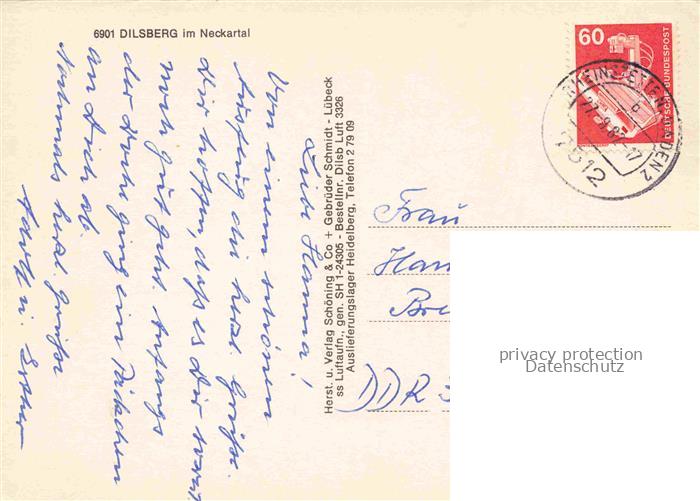 6901 DILSBERG im Neckartal
60
DEUTSCHE BUNDESPOST
7512
Herst. u. Verlag Schöning & Co + Gebrüder Schmidt - Lübeck
ss Luftaufn., gen. SH 1-24305 - Bestellnr. Dilsb Luft 3326
Auslieferungslager Heidelberg, Telefon 2 79 09
Liebe Hanna!
Von einem schönen
Ausflug die herzl. Grüße.
Wir hoffen, daß es Dir
noch gut geht. Anfangs
der Woche ging ein Päckchen
an Dich ab.
Nochmals herzl. Grüße
Adolf u. Esther
Frau
DDR
privacy protection
Datenschutz